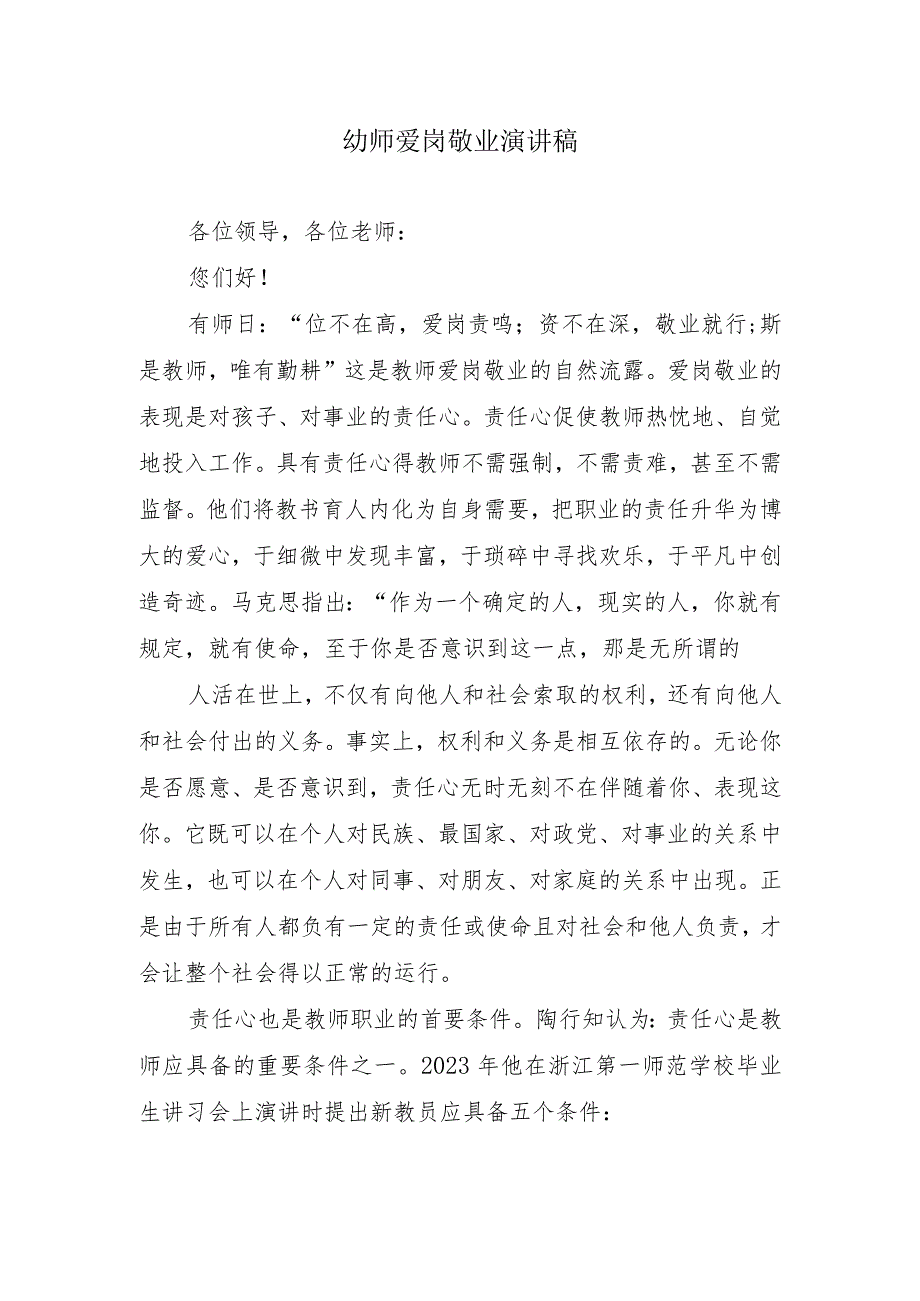 幼师爱岗敬业演讲稿
各位领导，各位老师：
您们好！
有师日：“位不在高，爱岗责鸣；资不在深，敬业就行;斯
是教师，唯有勤耕”这是教师爱岗敬业的自然流露。爱岗敬业的
表现是对孩子、对事业的责任心。责任心促使教师热忱地、自觉
地投入工作。具有责任心得教师不需强制，不需责难，甚至不需
监督。他们将教书育人内化为自身需要，把职业的责任升华为博
大的爱心，于细微中发现丰富，于琐碎中寻找欢乐，于平凡中创
造奇迹。马克思指出：“作为一个确定的人，现实的人，你就有
规定，就有使命，至于你是否意识到这一点，那是无所谓的
人活在世上，不仅有向他人和社会索取的权利，还有向他人
和社会付出的义务。事实上，权利和义务是相互依存的。无论你
是否愿意、是否意识到，责任心无时无刻不在伴随着你、表现这
你。它既可以在个人对民族、最国家、对政党、对事业的关系中
发生，也可以在个人对同事、对朋友、对家庭的关系中出现。正
是由于所有人都负有一定的责任或使命且对社会和他人负责，才
会让整个社会得以正常的运行。
责任心也是教师职业的首要条件。陶行知认为：责任心是教
师应具备的重要条件之一。2023 年他在浙江第一师范学校毕业
生讲习会上演讲时提出新教员应具备五个条件：